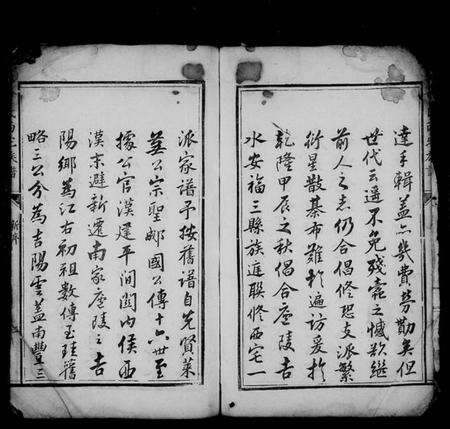 達手輯蓋亦幾費勞勩矣但
世代云遥不免殘蠹之憾欲繼
前人之志仍合倡修思支派繁
衍星散棊布難於遍訪爰於
乾隆甲辰之秋倡合庐陵吉
水安福三縣族進聯修西宅一
派家譜予按舊譜自先賢萊
蕪公宗聖郕國公傳十六世至
據公官漢建平間關内侯西
漢末避新遷南家庐陵之吉
陽鄉為江右初祖數傳至珪舊
略三公分為吉陽雲盖南豐三